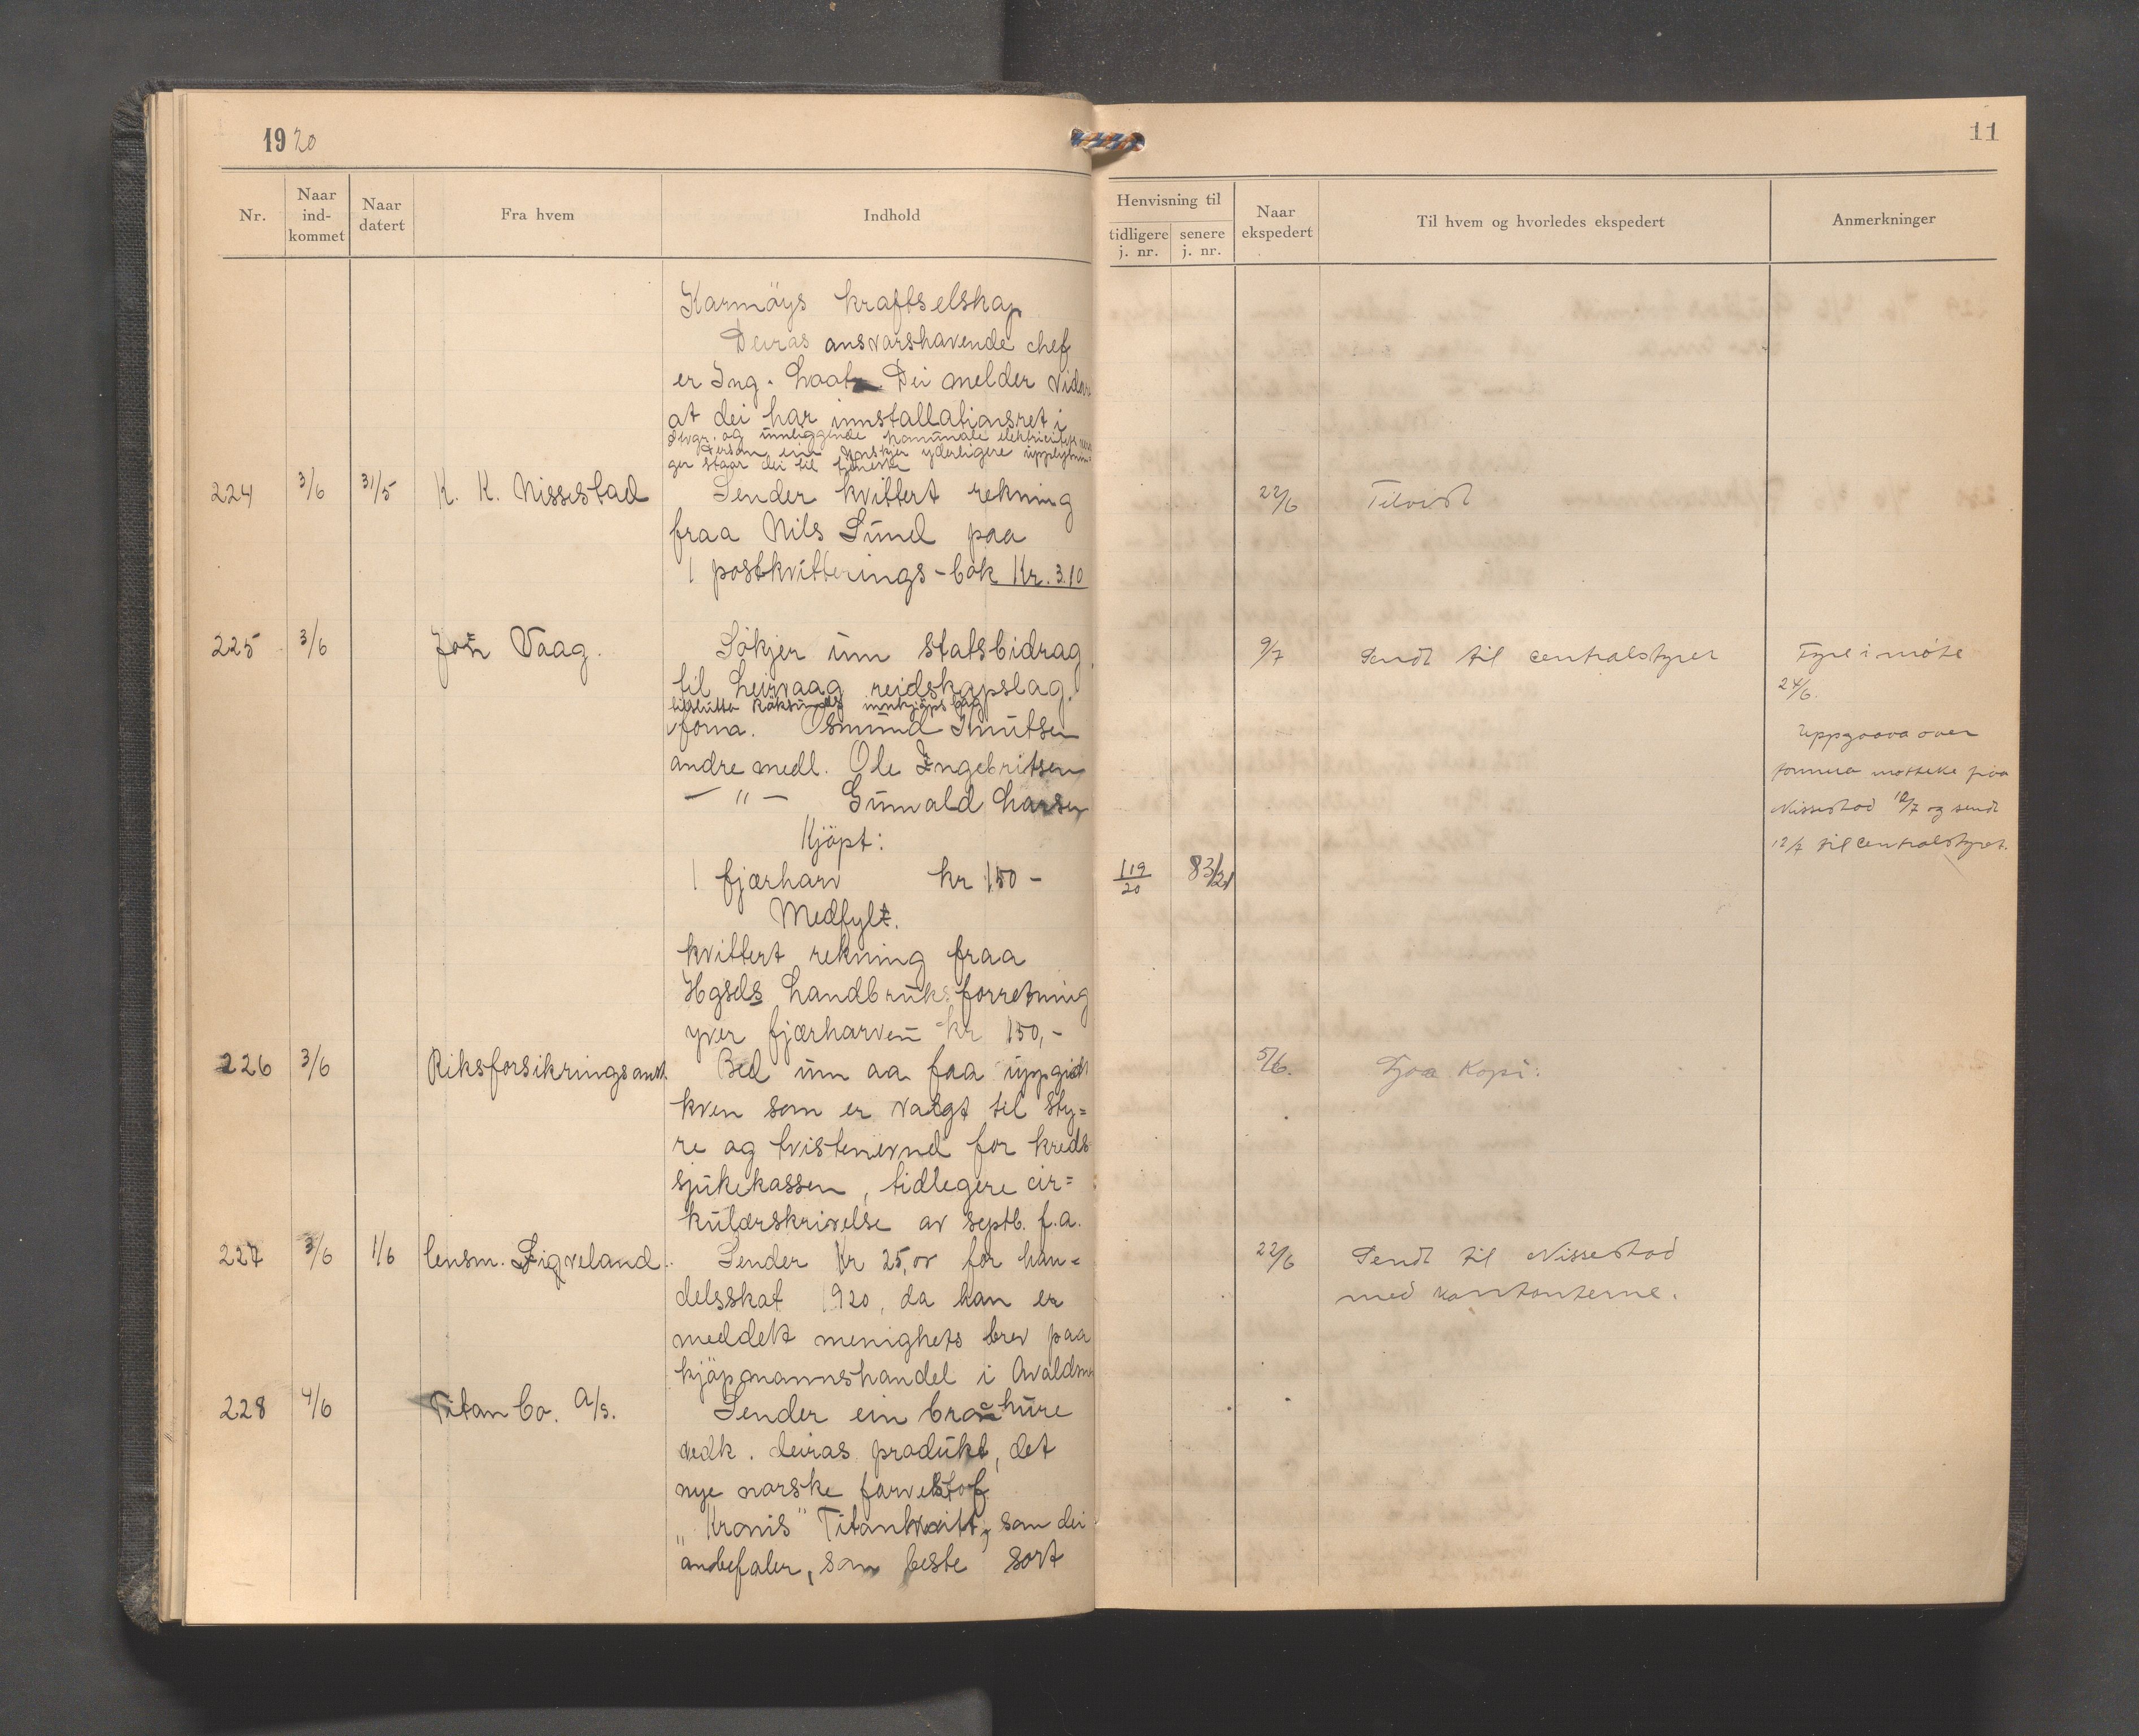 1920
11
Nr.
Naar ind-kommet
Naar datert
Fra hvem
Indhold
Henvisning til
tidligere j. nr.
senere j. nr.
Naar ekspedert
Til hvem og hvorledes ekspedert
Anmerkninger
Karmöys kraftselskap
Deiras ansvarshavende chef
er Ing. Dei melder vidare
at dei har innstallationsret i
og innliggende komunale
Dersom ein ynskjer yderligere upplysnin-
ger staar dei til tjeneste
224 3/6 31/5 K. K. Nissestad Sender kvittert rekning
fraa Nils Sund paa
1 postkvitterings-bok Kr. 3.10
22/6 Tilvist
225 3/6 Joh Vaag. Søkjer um statsbidrag
til Leirvaag reidskapslag.
tilslutta innkjöpslag
forma. Osmund Knutsen
andre medl. Ole Ingebritsen
— " — Gunvald Larsen
Kjöpt:
1 fjærharv kr 150 -
Medfylt.
kvittert rekning fraa
Hgsds Landbruksforretning
yver fjærharven kr 150,-
119/20 83/21
9/7 Sendt til centralstyret
Fyre i møte
24/6.
Uppgaava over
motteke fraa
Nissestad 12/7 og sendt
12/7 til centralstyret.
226 3/6 Riksforsikringsanst. Bed um aa faa uppgidt
kven som er valgt til sty=
re og tvistenevnd for kreds
sjukekassen, tidlegere cir=
kulærskrivelse av septb. f.a.
5/6. Kopi.
227 3/6 1/6 lensm. Sigveland. Sender Kr 25,00 for han=
delsskat 1920, da han er
meddelt menighets brev paa
kjöpmannshandel i Avaldsnes
22/6 Sendt til Nissestad
med kontonterne.
228 4/6 Titan Co. A/s. Sender ein brochure
vedk. deiras produkt, det
nye norske farvestof
"Kronos" Titanhvitt, som dei
anbefaler, som beste sort